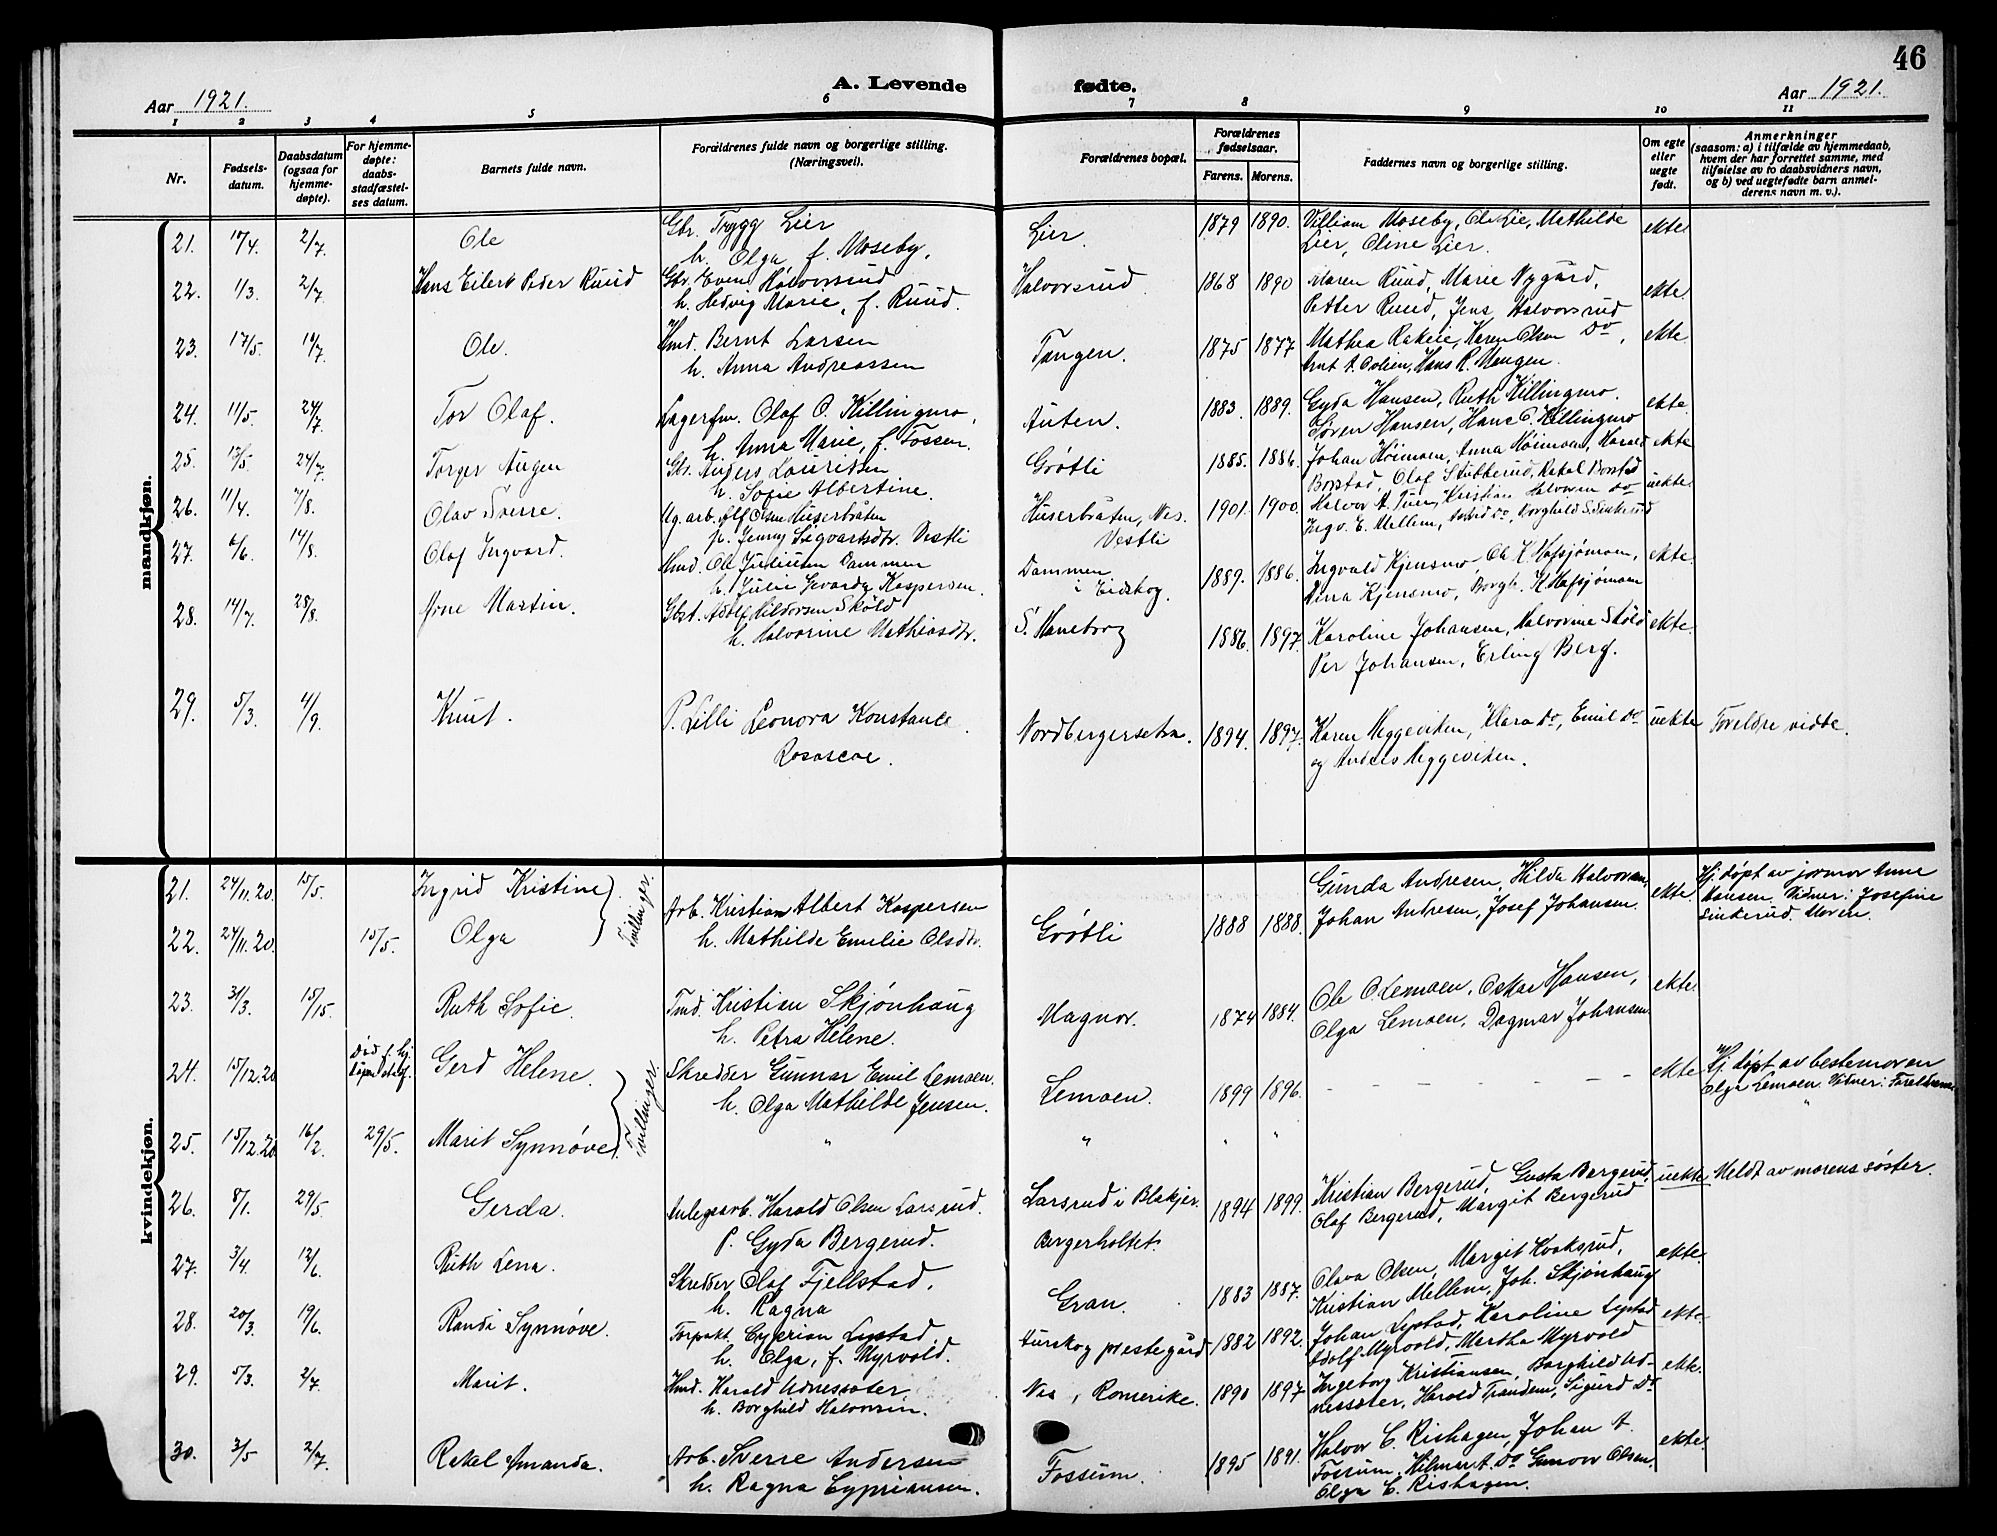 46
A. Levende fødte.
Aar 1921.
Aar 1921.
1 2 3 4 5 6 7 8 9 10 11
Nr.
Fødsels-
datum.
Daabsdatum
(ogsaa for
hjemme-
døpte).
For hjemme-
døpte:
daabs-
stadfæstel-
ses datum.
Barnets fulde navn.
Forældrenes fulde navn og borgerlige stilling.
(Næringsvei).
Forældrenes bopæl.
Forældrenes
fødselsaar.
Farens. Morens.
Faddernes navn og borgerlige stilling.
Om egte
eller
uegte
født.
Anmerkninger
(saasom: a) i tilfælde av hjemmedaab,
hvem der har forrettet samme, med
tilføielse av to daabsvidners navn,
og b) ved uegtefødte barn anmel-
derens navn m. v.).
mandkjøn.
21. 17/4. 2/7 Ole Gbr. Trygg Lier Lier. 1879 1890. Villiam Moseby, Ole Lie, Mathilde ekte.
h. Olga f. Moseby. Lier, Oline Lier.
22. 1/3. 2/7 Hans Eilert Peder Ruud Gbr. Even Halvorsrud Halvorsrud 1868 1890 Maren Ruud, Marie Nygård, ekte.
h. Hedvig Marie, f. Ruud. Petter Ruud, Jens Halvorsrud
23. 17/5. 10/7 Ole. Hmd. Bernt Larsen Tangen. 1875 1877 Mathea Rakeie, Karen Olsen Do, ekte
h. Anna Andreassen Hans R. Mangen.
24. 11/5. 24/7 Tor Olaf. Lagerfm. Olaf O. Killingmo, Auten. 1883. 1889. Gyda Hansen, Ruth Killingmo. ekte.
h. Anna Marie, f. Fossen. Søren Hansen, Hans O. Killingmo
25. 13/5. 24/7 Torger Augen Gbr. Anders Lauridsen Grøtli 1885. 1886. Johan Høimoen, Anna Høimoen, Harald ekte
h. Sofie Albertine. Borstad, Olaf Stubberud, Rakel Borstad
26. 11/4. 7/8. Olav Sverre. Ug. arb. Alf Olsen Huserbråten Huserbråten, Nes. 1901. 1900. Halvor A. Tuen, Kristian Halvorsen Do uekte.
p. Jenny Sigvartsdtr. Vestli Vestli Ingv. E. Mellem, Astrid Do, Borghild Sinkerud
27. 6/6. 14/8. Olaf Ingvard. Hmd. Ole Juliusen Dammen Dammen 1889. 1886. Ingvald Kjensmo, Ole K. Hafsjømoen, ekte.
h. Julie Kaspersen. i Eidskog. Anna Kjensmo, Borgh. K. Hafsjømoen
28. 14/7. 28/8. Arne Martin. Gbst. Adolf Hildorsen Sköld S. Haneborg 1886. 1897. Karoline Johansen, Halvorine Sköld ekte.
h. Halvorine Mathiasdtr. Per Johansen, Erling Berg.
29. 5/3. 4/9. Knut. P. Lilli Leonora Konstance Nordbergersetra. 1894. 1897. Karen Heggeviken, Klara Do, Emil Do uekte Foreldre vidde.
Rosascoe. og Anders Heggeviken.
kvindekjøn.
21. 24/11.20. 15/5. Ingrid Kristine Tvillinger. Arb. Kristian Albert Kaspersen Gunda Andresen, Hilda Halvorsen, ekte. Hj. døpt av jormor Anne
h. Mathilde Emilie Olsdtr. Grøtli 1888 1888. Johan Andresen, Josef Johansen Hansen. Vidner: Josefine
22. 24/11.20. 15/5. Olga Sinkerud. Moren.
23. 31/3. 15/15. Ruth Sofie. Tmd. Kristian Skjønhaug Magnor. 1874 1884. Ole O. Lemoen, Oskar Hansen, ekte.
h. Petra Helene. Olga Lemoen, Dagmar Johansen
24. 15/12.20 død f. hj. Gerd Helene. Tvillinger. Skredder Gunnar Emil Lemoen. Lemoen. 1899 1896. - - - - - - ekte Hj. døpt av bestemoren
h. Olga Mathilde Jensen. Olga Lemoen. Vidner: Foreldrene
25. 15/12.20 16/2. 29/5. Marit Synnøve. " " " " "
26. 8/1. 29/5 Gerda. Anlegsarb. Harald Olsen Larsrud. Larsrud i Blakjer. 1894 1899. Kristian Bergerud, Gusta Bergerud, uekte. Meldt av morens søster.
P. Gyda Bergerud. Bergerholtet. Olaf Bergerud, Margit Bergerud
27. 3/4. 12/6. Ruth Lena. Skredder Olaf Fjellstad. Gran. 1883 1887. Olava Olsen, Margit Kvoksrud, ekte.
h. Ragna Kristian Mellem, Joh. Skjønhaug
28. 20/3. 19/6. Randi Synnøve. Forpakt. Cyprian Lystad. Aurskog prestegård 1882 1892. Johan Lystad, Karoline Lystad ekte
h. Olga, f. Myrvold. Adolf Myrvold, Martha Myrvold
29. 5/3. 2/7 Marit. Hmd. Harald Udnessæter Nes, Romerike. 1890 1897 Ingeborg Kristiansen, Borghild Ud- ekte.
h. Borghild Halvorsen. nessæter, Harald Trandem, Sigurd Do
30. 3/5 2/7. Rakel Amanda. Arb. Sverre Andersen Fossum. 1895 1891. Halvor C. Rishagen, Johan A. ekte.
h. Ragna Cypriansen. Fossum, Hilmar A. Do Gunvor Olsen.
Olga C. Rishagen.